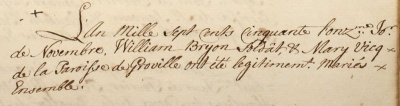 +
L'An Mille Sept Cents Cinquante l'onz.me Jo.r
de Novembre, William Bryon Soldat & Mary Vicq
de la Paroisse de Groville ont été legitimem.t Mariés
Ensemble.